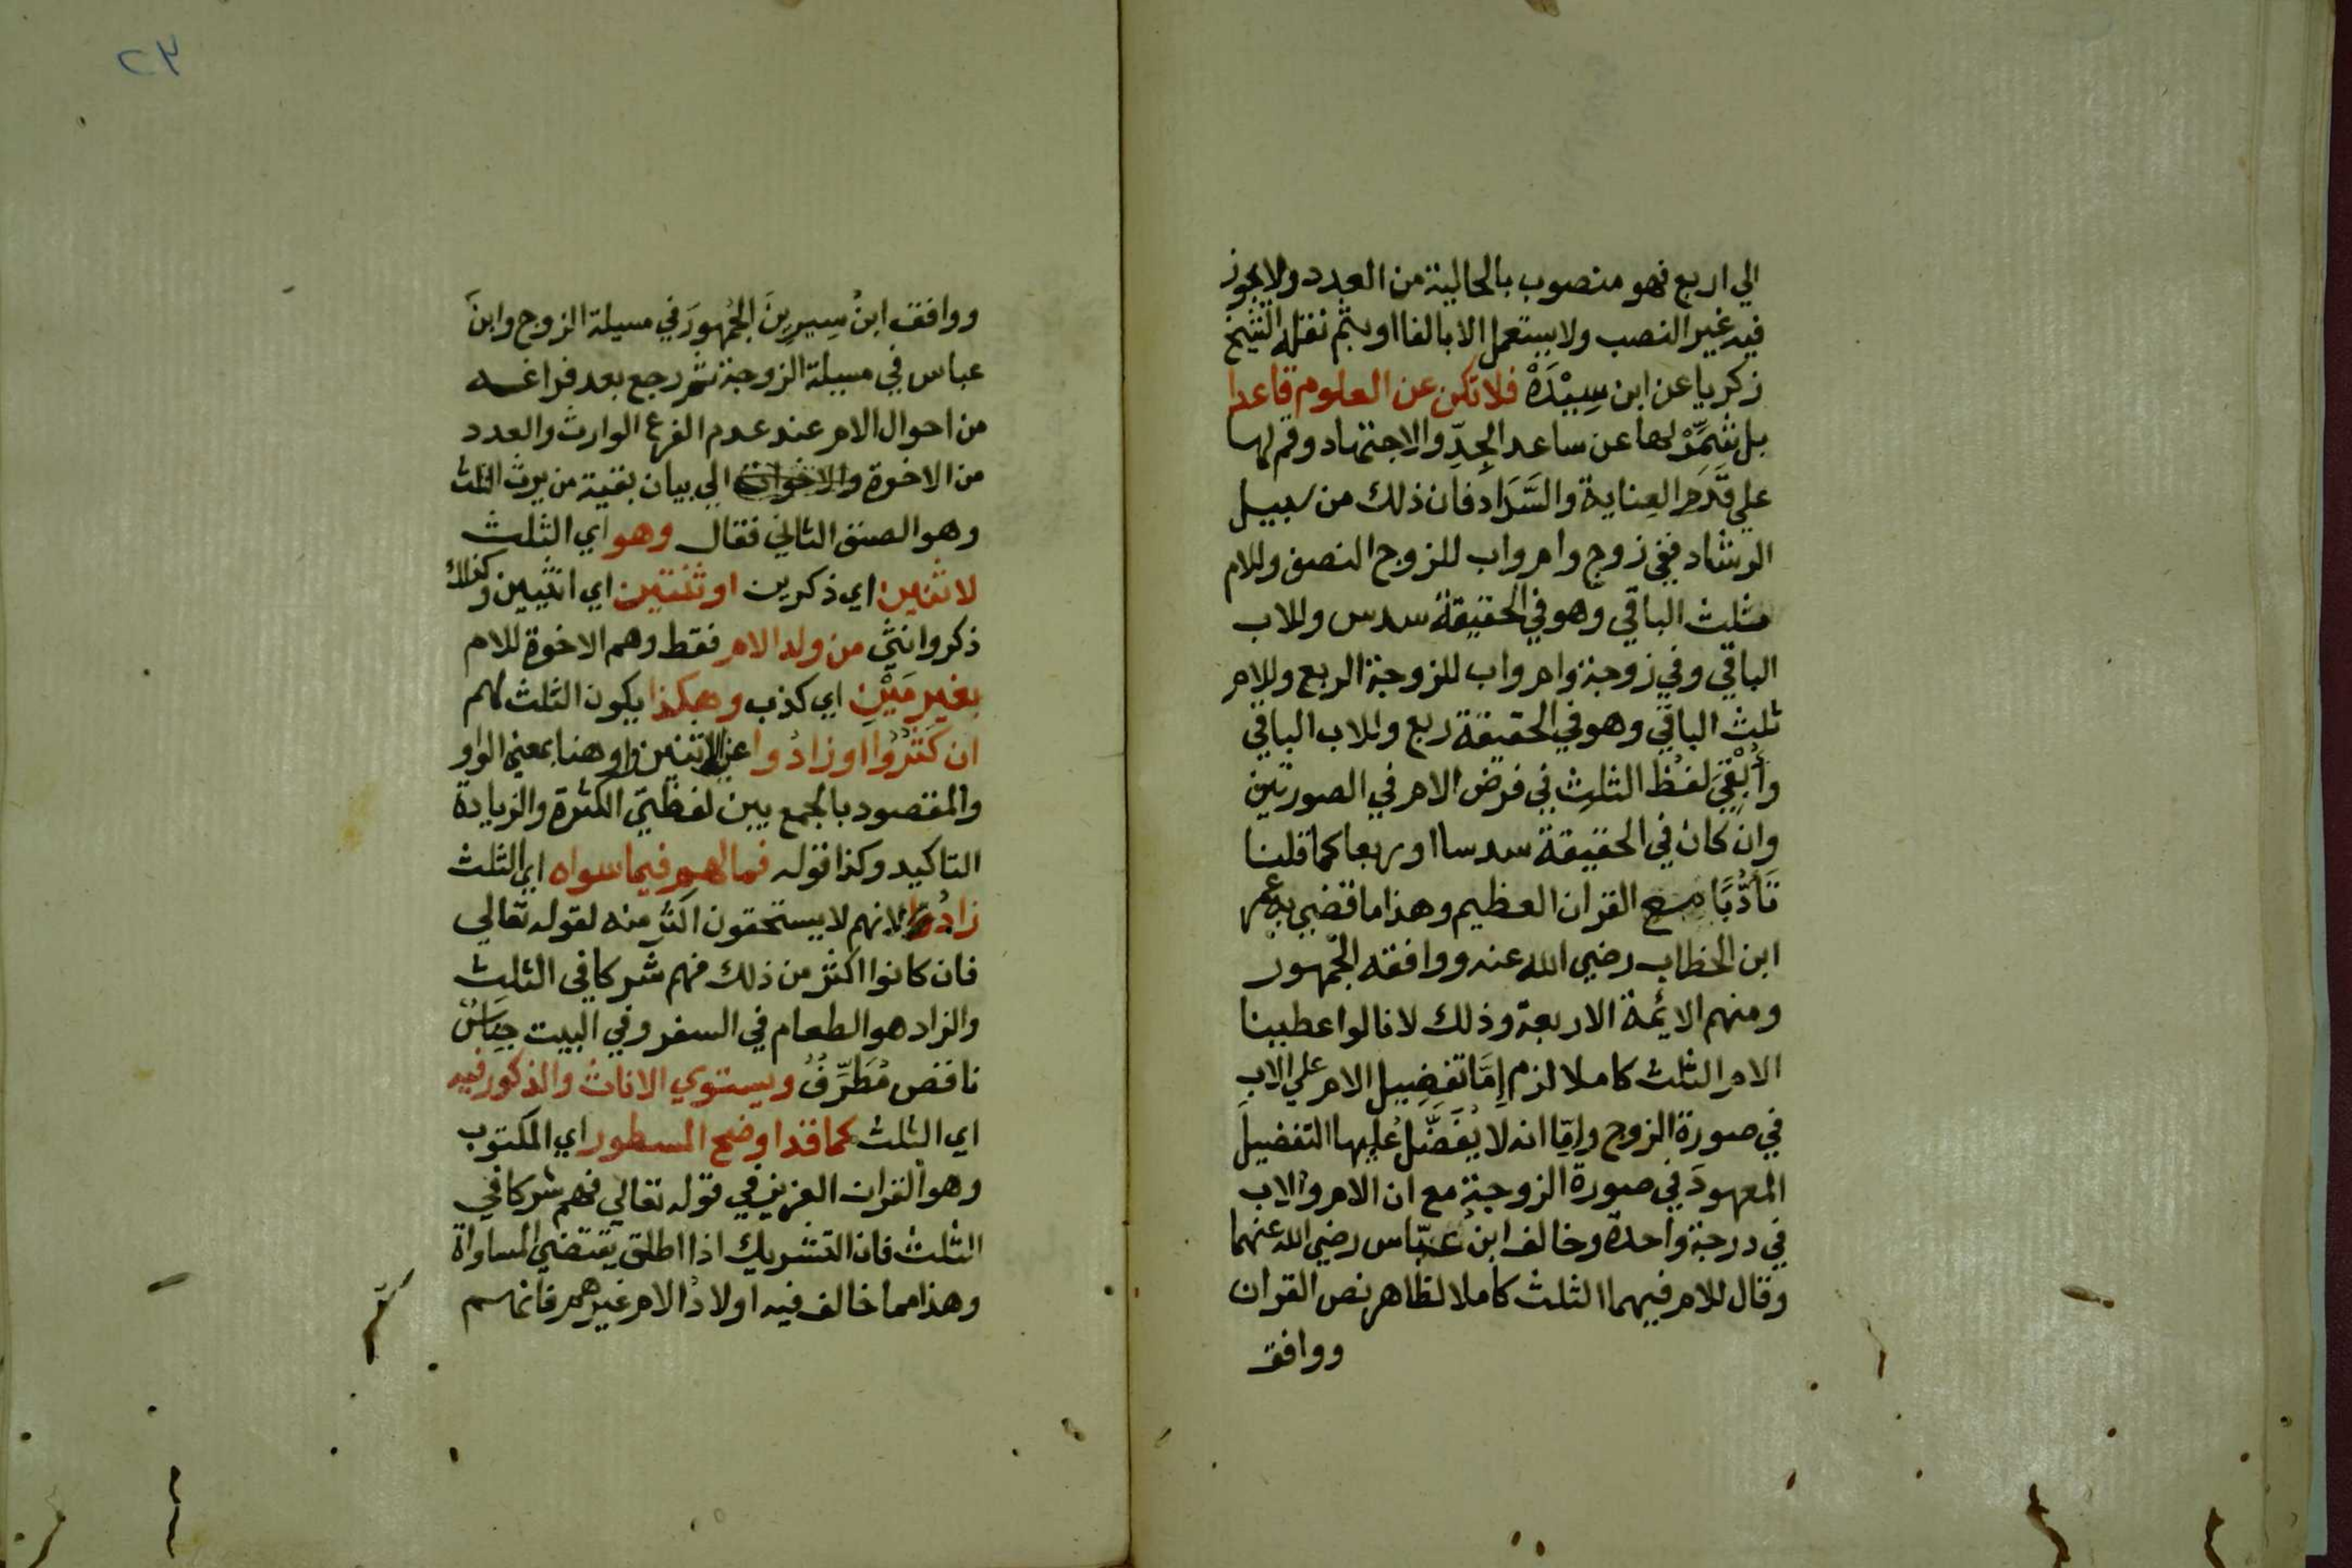 الي اربع فهو منصوب بالحالية من العدد ولا يجوز
فيه غير النصب ولا يستعمل الا بالفا او بثم نقله الشيخ
زكريا عن ابن سِيْدَهْ فلا تكن عن العلوم قاعدا
بل شَمِّرْ لها عن ساعد الجِدِّ والاجتهاد وقم لها
علي قَدَمِ العِناية والسَّدَاد فان ذلك من سبيل
الرشاد ففي زوج وام واب للزوج النصف وللام
ثلث الباقي وهو في الحقيقة سدس وللاب
الباقي وفي زوجة وام واب للزوجة الربع وللام
ثلث الباقي وهو في الحقيقة ربع وللاب الباقي
وأُبْقِيَ لفظُ الثلثِ في فرض الام في الصورتين
وان كان في الحقيقة سدسا او ربعا كما قلنا
تَأَدُّبًا مع القران العظيم وهذا ما قضي به عمر
ابن الخطاب رضي الله عنه ووافقه الجمهور
ومنهم الايمة الاربعة وذلك لانا لو اعطينا
الام الثلث كاملا لزم إِمَّا تفضيل الام علي الاب
في صورة الزوج وإمّا انه لا يُفَضَّلُ عليها التفضيلَ
المعهودَ في صورة الزوجة مع ان الام والاب
في درجة واحدة وخالف ابن عبّاس رضي الله عنهما
وقال للام فيهما الثلث كاملا لظاهر نص القران
ووافق
٢٣
ووافق ابنُ سِيرِينَ الجُمْهورَ في مسيلة الزوج وابنَ
عباس في مسيلة الزوجة ثم رجع بعد فراغه
من احوال الام عند عدم الفرع الوارث والعدد
من الاخوة والاخوات الي بيان بقية من يرث الثلث
وهو الصنف الثاني فقال وهو اي الثلث
لاثنين اي ذكرين او ثنتين اي انثيين وكذلك
ذكر وانثي من ولد الام فقط وهم الاخوة للام
بغير مَيْنِ اي كذب وهكذا يكون الثلث لهم
ان كَثُرُوا او زادُوا عن الاثنين واو هنا بمعني الواو
والمقصود بالجمع بين لفظتي الكثرة والزيادة
التاكيد وكذا قوله فما لهم فيما سواه اي الثلث
زادُ لانهم لا يستحقون اكثر منه لقوله تعالي
فان كانوا اكثر من ذلك فهم شركا في الثلث
والزاد هو الطعام في السفر وفي البيت جِنَاسٌ
ناقص مُطَرِّفٌ ويستوي الاناث والذكور فيه
اي الثلث كما قد اوضح المسطور اي المكتوب
وهو القران العزيز في قوله تعالي فهم شركا في
الثلث فان التشريك اذا اطلق يقتضي المساواة
وهذا مما خالف فيه اولادُ الام غيرهم فانهم